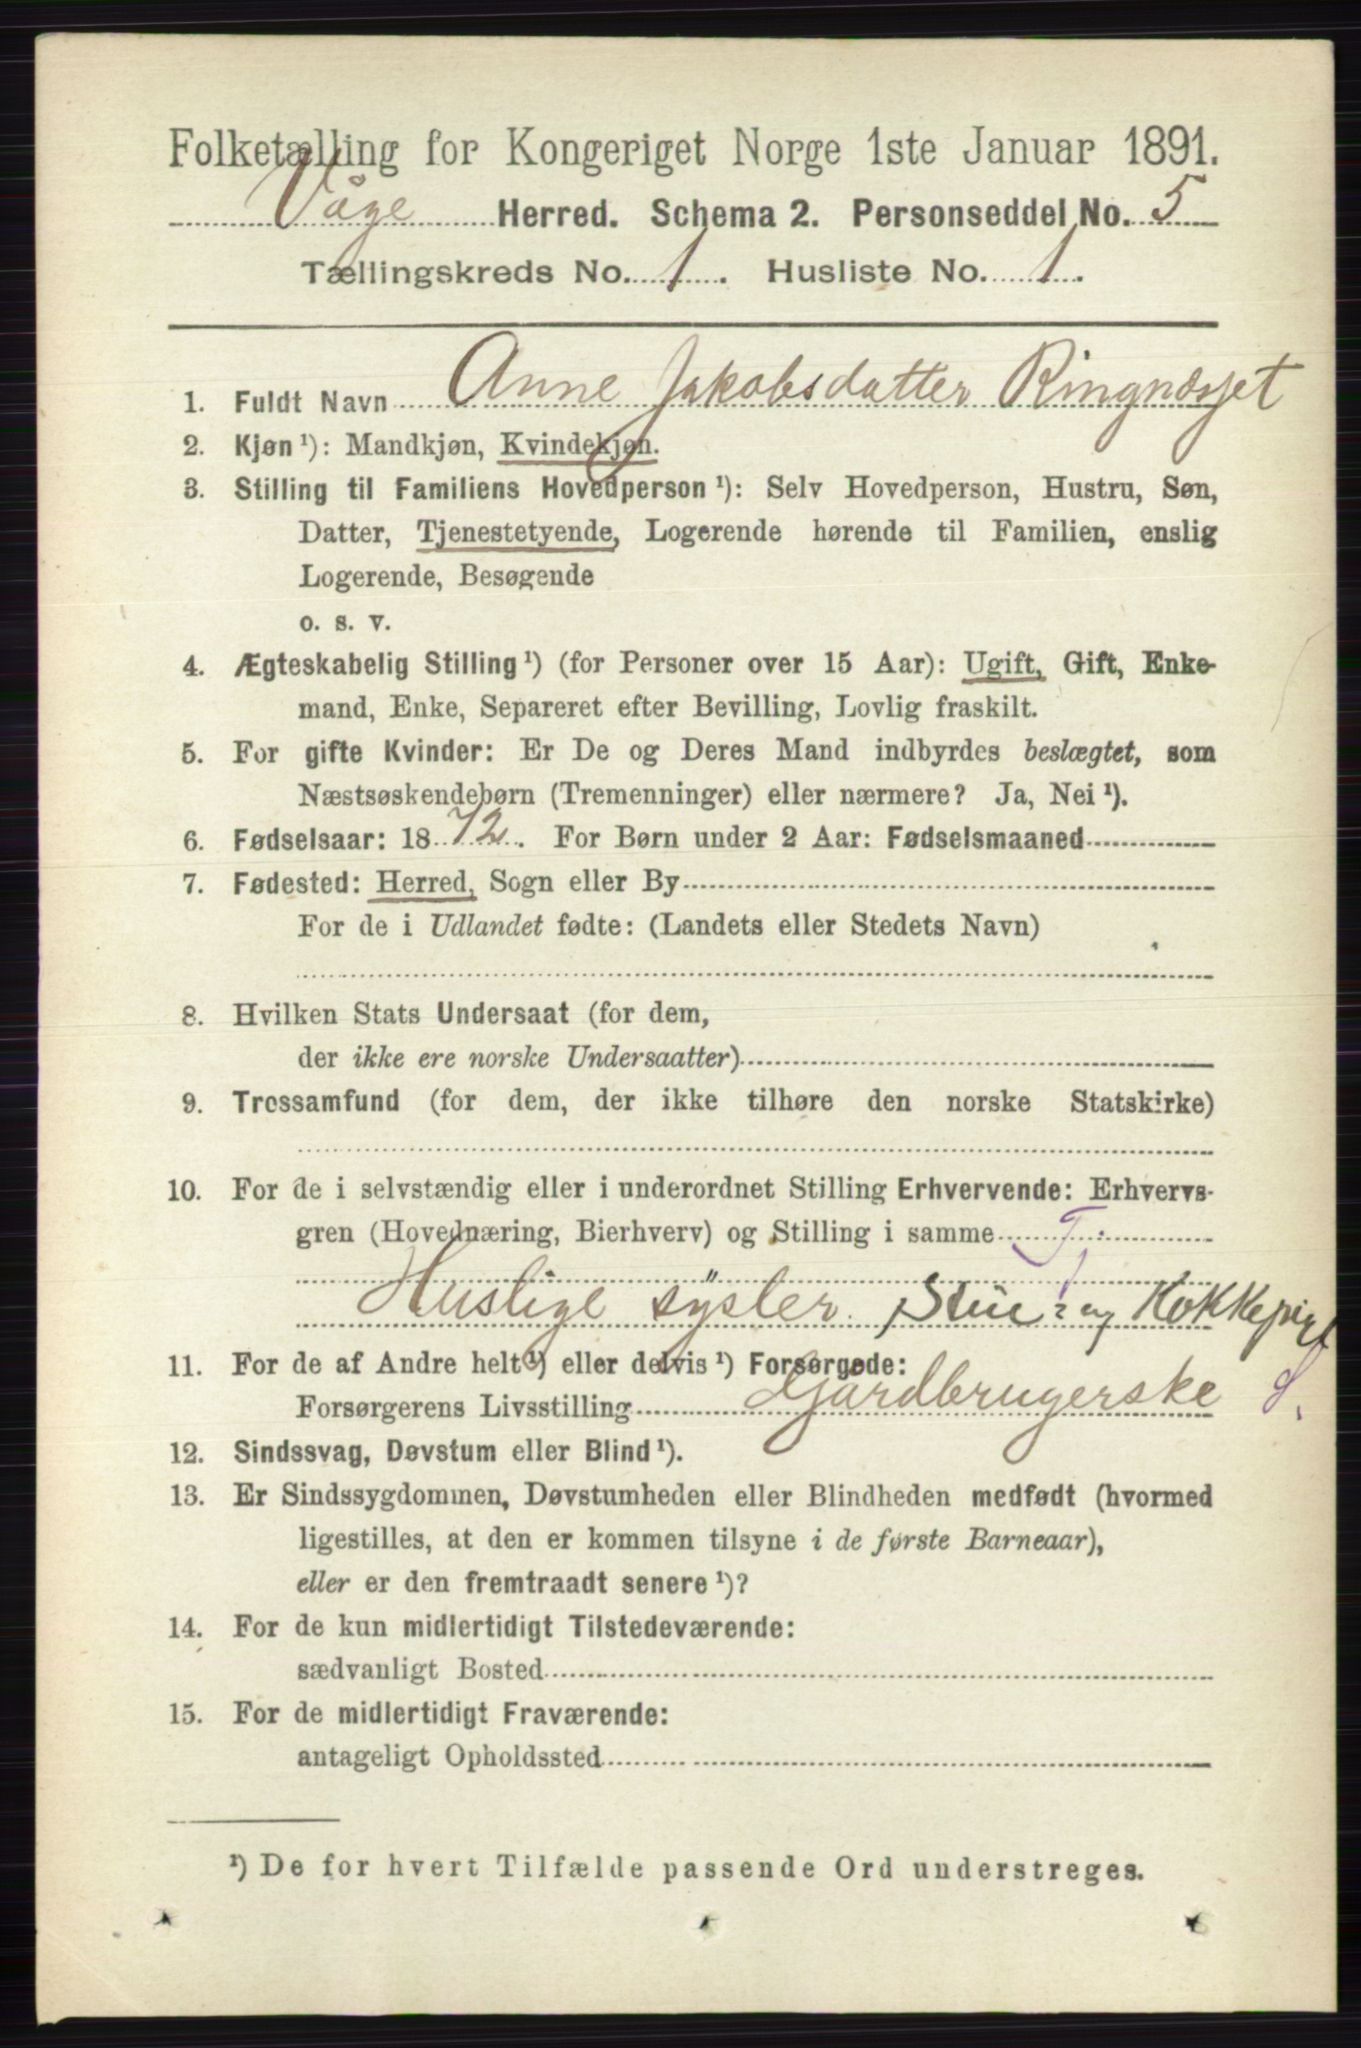 Folketælling for Kongeriget Norge 1ste Januar 1891.
Våge Herred. Schema 2. Personseddel No. 5
Tællingskreds No. 1. Husliste No. 1.
1. Fuldt Navn Anne Jakobsdatter Ringnæsjet
2. Kjøn ¹): Mandkjøn, Kvindekjøn.
3. Stilling til Familiens Hovedperson ¹): Selv Hovedperson, Hustru, Søn,
Datter, Tjenestetyende, Logerende hørende til Familien, enslig
Logerende, Besøgende
o. s. v.
4. Ægteskabelig Stilling ¹) (for Personer over 15 Aar): Ugift, Gift, Enke-
mand, Enke, Separeret efter Bevilling, Lovlig fraskilt.
5. For gifte Kvinder: Er De og Deres Mand indbyrdes beslægtet, som
Næstsøskendebørn (Tremenninger) eller nærmere? Ja, Nei ¹).
6. Fødselsaar: 1872. For Børn under 2 Aar: Fødselsmaaned
7. Fødested: Herred, Sogn eller By
For de i Udlandet fødte: (Landets eller Stedets Navn)
8. Hvilken Stats Undersaat (for dem,
der ikke ere norske Undersaatter)
9. Trossamfund (for dem, der ikke tilhøre den norske Statskirke)
10. For de i selvstændig eller i underordnet Stilling Erhvervende: Erhvervs-
gren (Hovednæring, Bierhverv) og Stilling i samme T.
Huslige sysler. Stue- og Kokkepige
11. For de af Andre helt ¹) eller delvis ¹) Forsørgede:
Forsørgerens Livsstilling Gårdbrugerske
12. Sindssvag, Døvstum eller Blind ¹).
13. Er Sindssygdommen, Døvstumheden eller Blindheden medfødt (hvormed
ligestilles, at den er kommen tilsyne i de første Barneaar),
eller er den fremtraadt senere ¹)?
14. For de kun midlertidigt Tilstedeværende:
sædvanligt Bosted
15. For de midlertidigt Fraværende:
antageligt Opholdssted
¹) De for hvert Tilfælde passende Ord understreges.